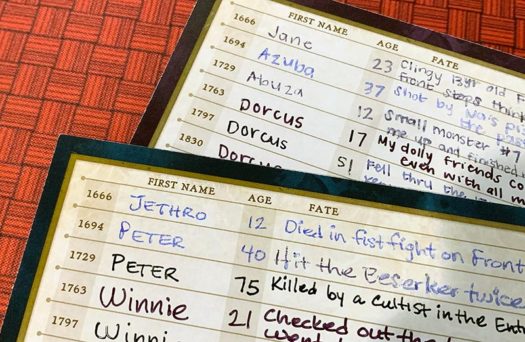 FIRST NAME AGE FATE
1666 Jane 23 Clingy 13yr old
front steps
1694 Azuba 37 Shot by
the
1729 Abuzia 12 Small monster #7
me up and finished
1763 Dorcus 17 My dolly friends
even with all
1797 Dorcus 51 Fell thru the
1830 Dorcus
FIRST NAME AGE FATE
1666 JETHRO 12 Died in fist fight on Front
1694 PETER 40 Hit the Beserker twice
1729 PETER 75 Killed by a Cultist in the
1763 Winnie 21 Checked out the
went
1797